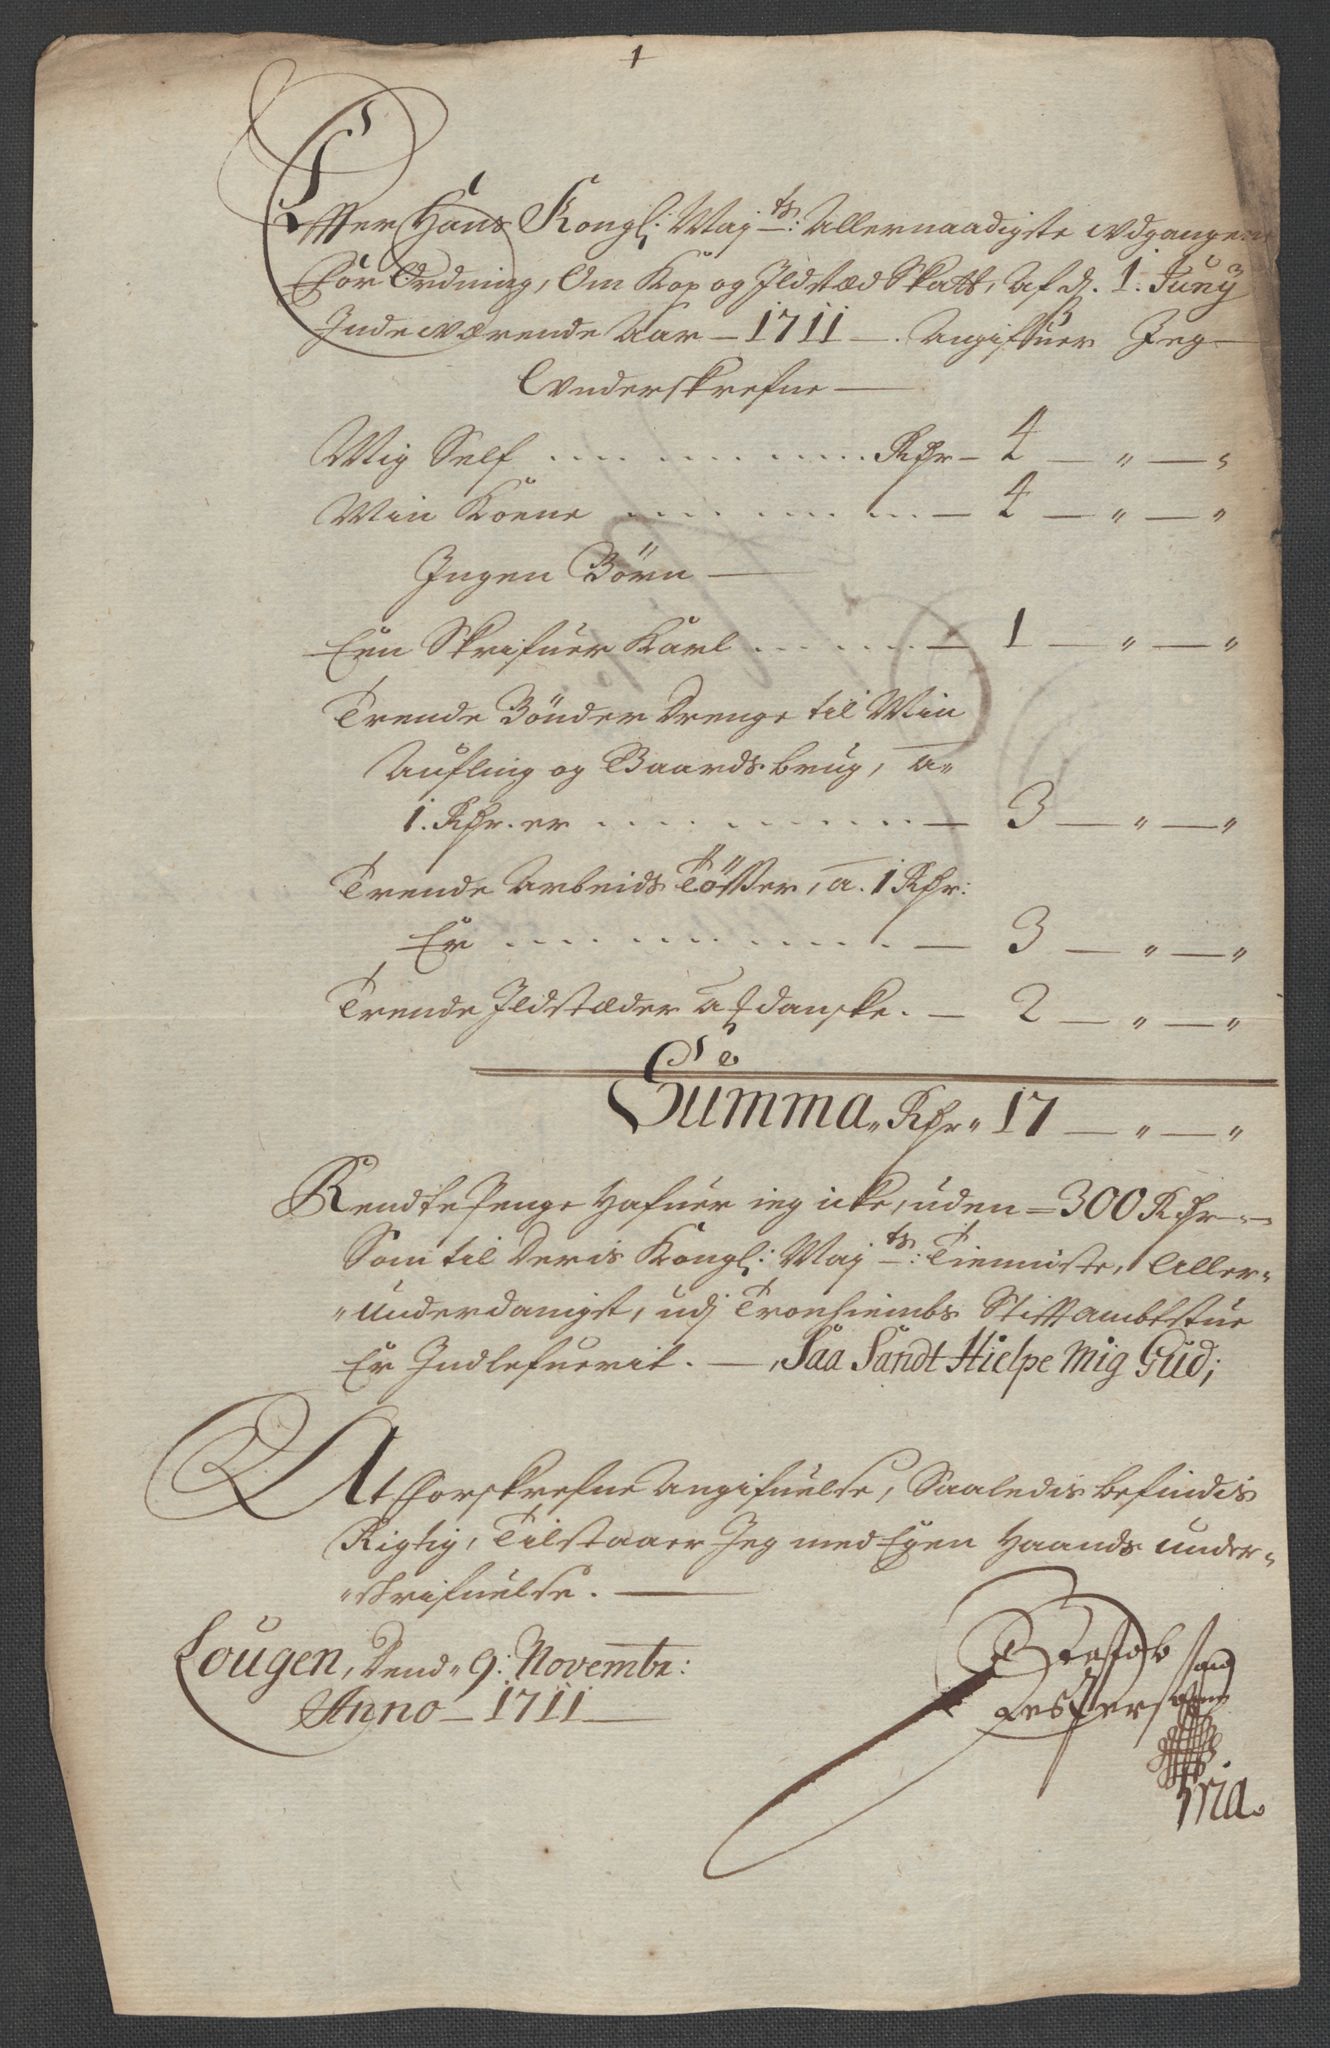 1
Effter Hans Kongl: Maj:ts: Allernaadigste udgangen
For Ordning, Om Kop og Ildstæd Skatt, Af d. 1. Juny
Indeværende Aar – 1711 –. Angiffuer Jeg
Underskrefne
Mig Self .... .... .... Rdr – 4 – " – "
Min Kone .... .... ... – 4 – " – "
Ingen Börn
Een Skrifuer Karl ........ – 1 – " – "
Trende Bönder Drenge til Min
Aufling og Gaards brug, a"
1. Rdr. er ............ – 3 – " – "
Trende Arbeids Töffer, a. 1 Rdr:
Er ............ – 3 – " – "
Trende Ildstæder danske. – 2 – " – "
Summa" Rdr" 17 – " – "
Rendte Penge hafuer ieg icke, uden = 300 Rdr
Som til Deris Kongl: Maj:ts: Tienniste, Aller-
-underdanigst, udj Tronhiembs Stifftambtstue
Er Indlefuerit. –, Saa Sandt Hielpe Mig Gud;
At forskrefne Angifuelse, Saaledis befindis
Rigtig, Tilstaaer Jeg med Egen Haands under-
-skrifuelse.
Lougen, Dend" 9: Novembr:
Anno – 1711
Jespersen
mia.